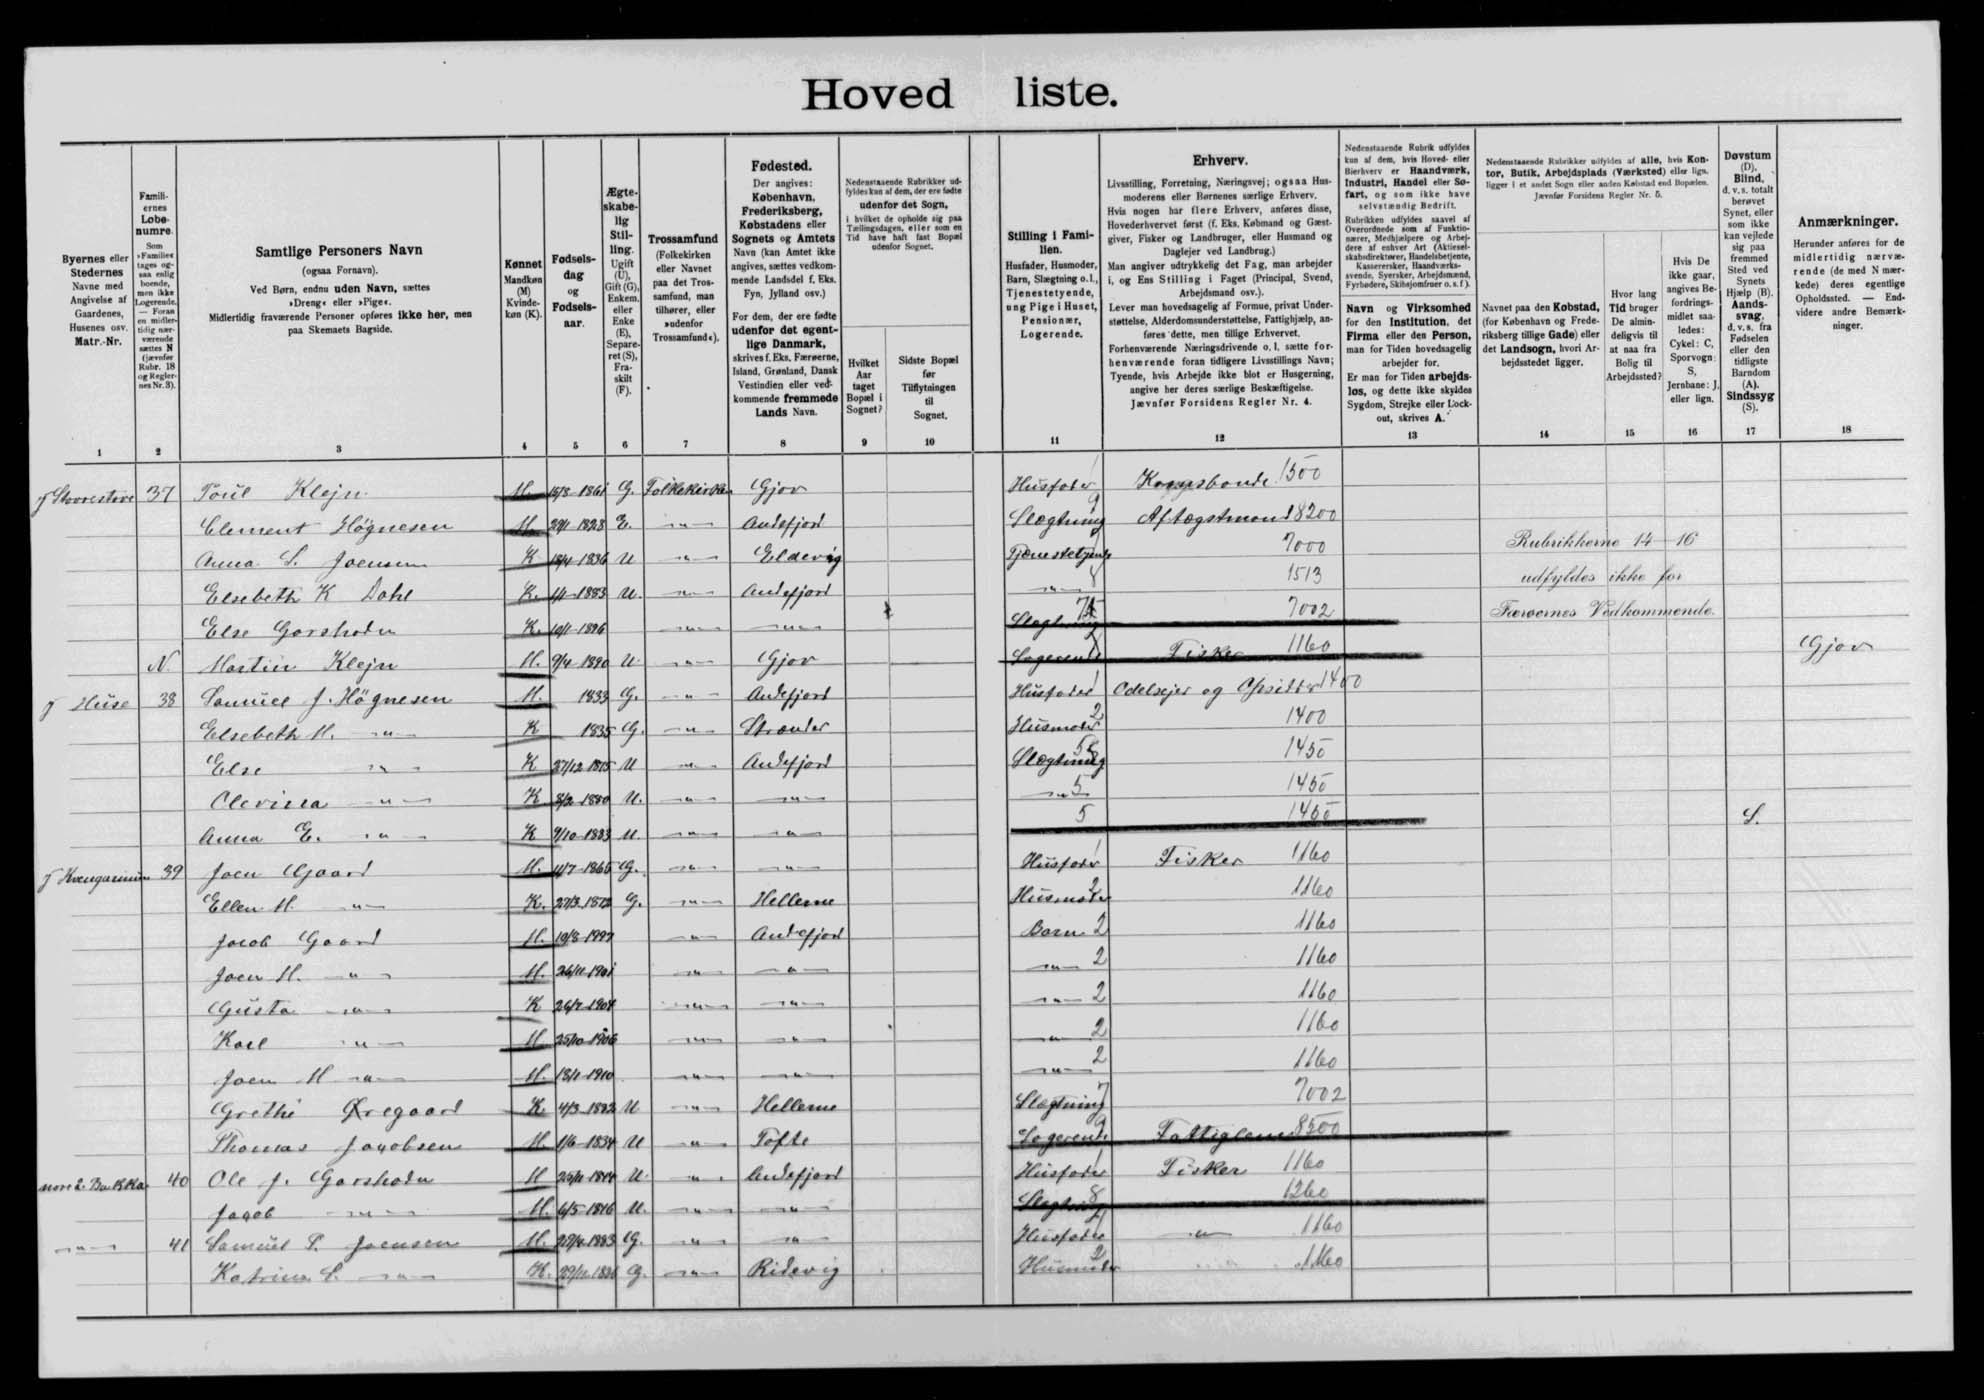 Hovedliste.
Byernes eller Stedernes Navne med Angivelse af Gaardenes, Husenes osv. Matr.-Nr.
Familiernes Løbenumre.
Som »Familie« tages ogsaa enlig boende, men ikke Logerende. — Foran en midlertidig nærværende sættes N (jævnfør Rubr. 18 og Reglernes Nr. 3).
Samtlige Personers Navn
(ogsaa Fornavn).
Ved Børn, endnu uden Navn, sættes »Dreng« eller »Pige«.
Midlertidig fraværende Personer opføres ikke her, men paa Skemaets Bagside.
Kønnet
Mandkøn (M) Kvindekøn (K).
Fødselsdag og Fødselsaar.
Ægteskabelig Stilling.
Ugift (U), Gift (G), Enkem. eller Enke (E), Separeret (S), Fraskilt (F).
Trossamfund
(Folkekirken eller Navnet paa det Trossamfund, man tilhører, eller »udenfor Trossamfund«).
Fødested.
Der angives: København, Frederiksberg, Købstadens eller Sognets og Amtets Navn (kan Amtet ikke angives, sættes vedkommende Landsdel f. Eks. Fyn, Jylland osv.)
For dem, der ere fødte udenfor det egentlige Danmark, skrives f. Eks. Færøerne, Island, Grønland, Dansk Vestindien eller vedkommende fremmede Lands Navn.
Nedenstaaende Rubrikker udfyldes kun af dem, der ere fødte udenfor det Sogn, i hvilket de opholde sig paa Tællingsdagen, eller som en Tid have haft fast Bopæl udenfor Sognet.
Hvilket Aar taget Bopæl i Sognet?
Sidste Bopæl før Tilflytningen til Sognet.
Stilling i Familien.
Husfader, Husmoder, Barn, Slægtning o.l., Tjenestetyende, ung Pige i Huset, Pensionær, Logerende.
Erhverv.
Livsstilling, Forretning, Næringsvej; ogsaa Husmoderens eller Børnenes særlige Erhverv.
Hvis nogen har flere Erhverv, anføres disse, Hovederhvervet først (f. Eks. Købmand og Gæstgiver, Fisker og Landbruger, eller Husmand og Daglejer ved Landbrug.)
Man angiver udtrykkelig det Fag, man arbejder i, og Ens Stilling i Faget (Principal, Svend, Arbejdsmand osv.).
Lever man hovedsagelig af Formue, privat Understøttelse, Alderdomsunderstøttelse, Fattighjælp, anføres dette, men tillige Erhvervet.
Forhenværende Næringsdrivende o. l. sætte forhenværende foran tidligere Livsstillings Navn; Tyende, hvis Arbejde ikke blot er Husgerning, angive her deres særlige Beskæftigelse.
Jævnfør Forsidens Regler Nr. 4.
Nedenstaaende Rubrik udfyldes kun af dem, hvis Hoved- eller Bierhverv er Haandværk, Industri, Handel eller Søfart, og som ikke have selvstændig Bedrift.
Rubrikken udfyldes saavel af Overordnede som af Funktionærer, Medhjælpere og Arbejdere af enhver Art (Aktieselskabsdirektører, Handelsbetjente, Kassererske, Haandværkssvende, Syersker, Arbejdsmænd, Fyrbødere, Skibsjomfruer o. s. f.).
Navn og Virksomhed for den Institution, det Firma eller den Person, man for Tiden hovedsagelig arbejder for.
Er man for Tiden arbejdsløs, og dette ikke skyldes Sygdom, Strejke eller Lockout, skrives A.
Nedenstaaende Rubrikker udfyldes af alle, hvis Kontor, Butik, Arbejdsplads (Værksted) eller lign. ligger i et andet Sogn eller anden Købstad end Bopælen. Jævnfør Forsidens Regler Nr. 5.
Navnet paa den Købstad, (for København og Frederiksberg tillige Gade) eller det Landsogn, hvori Arbejdsstedet ligger.
Hvor lang Tid bruger De almindeligvis til at naa fra Bolig til Arbejdssted?
Hvis De ikke gaar, angives Befordringsmidlet saaledes: Cykel: C, Sporvogn: S, Jernbane: J, eller lign.
Døvstum (D). Blind, d. v. s. totalt berøvet Synet, eller som ikke kan vejlede sig paa fremmed Sted ved Synets Hjælp (B). Aandssvag, d. v. s. fra Fødselen eller den tidligste Barndom (A). Sindssyg (S).
Anmærkninger.
Herunder anføres for de midlertidig nærværende (de med N mærkede) deres egentlige Opholdssted. — Endvidere andre Bemærkninger.
1 2 3 4 5 6 7 8 9 10 11 12 13 14 15 16 17 18
37 Poul Klejn M. 15/8 1861 G. Folkekirken Gjov Husfader 1 Kongsbonde 1500
Clement Høgnesen M. 1828 E. —"— Andefjord Slægtning 9 Aftægstmand 8200
Anna S. Joensen K 1836 U —"— Eldevig Tjenestetyende 7000 Rubrikkerne 14–16
Elsebeth K Dahl K. 1883 U. —"— Andefjord —"— 8 1513 udfyldes ikke for
Else Garshodn K. 10/1 1896 —"— —"— Slægtning 7 7002 Færøernes Vedkommende.
N. Martin Klejn M. 9/4 1890 U. —"— Gjov Logerende Fisker 1160 Gjov
j Huse 38 Samuel J. Høgnesen M. 1833 G. —"— Andefjord Husfader 1 Odelsejer og Opsidder 1400
Elsebeth M. —"— K 1835 G. —"— Strænder Husmoder 2 1400
Else —"— K 27/12 1875 U —"— Andefjord Slægtning 5 1450
Olevina —"— K 3/2 1880 U. —"— —"— —"— 5 1450
Anna E. —"— K 9/10 1883 U. —"— —"— 5 1450 S.
39 Joen Gaard M. 11/7 1865 G. —"— —"— Husfader 1 Fisker 1160
Ellen M. —"— K. 27/3 1872 G. —"— Hellerne Husmoder 2 1160
Jacob Gaard M. 10/8 —"— Andefjord Barn 2 1160
Joen M. —"— M. 26/11 1901 —"— —"— —"— 2 1160
Gusta —"— K 26/7 1904 —"— —"— —"— 2 1160
Karl —"— M 25/10 1906 —"— —"— —"— 2 1160
Joen M —"— M. 13/11 1910 —"— —"— —"— 2 1160
Grethe Øregaard K. 4/3 1892 U —"— Hellerne Slægtning 7 7002
Thomas Jacobsen M. 1/6 1834 U —"— Tofte Logerende 9 Fattiglem 8500
40 Ole J. Garshodn M U. —"— Andefjord Husfader 1 Fisker 1160
Jacob —"— M. 6/5 U. —"— —"— Slægtning 8 1260
—"— 41 Samuel P. Joensen M. 1883 G. —"— —"— Husfader 1 —"— 1160
Katrina S. —"— K. 29/11 G. —"— Ridevig Husmoder 2 1160